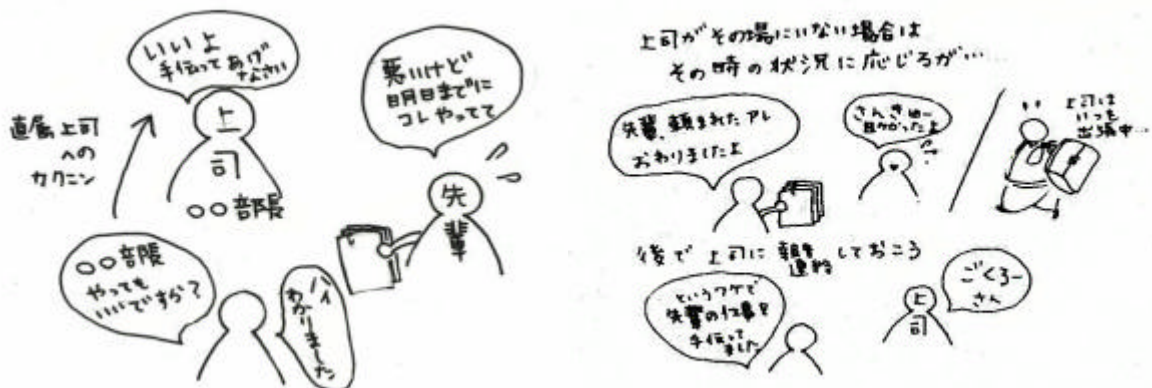 いいよ
手伝ってあげ
なさい
上
司
〇〇部長
直属上司
への
カクニン
悪いけど
明日までに
コレやってて
先
輩
〇〇部長
やっても
いいですか?
ハイ
わかりました
上司がその場にいない場合は
その時の状況に応じるが…
先輩、頼まれたアレ
おわりましたよ
さんきゅー
助かったよ
上司は
いつも
出張中…
後で上司に報告
連絡しておこう
というワケで
先輩の仕事を
手伝って
ました
上
司
ごくろー
さん